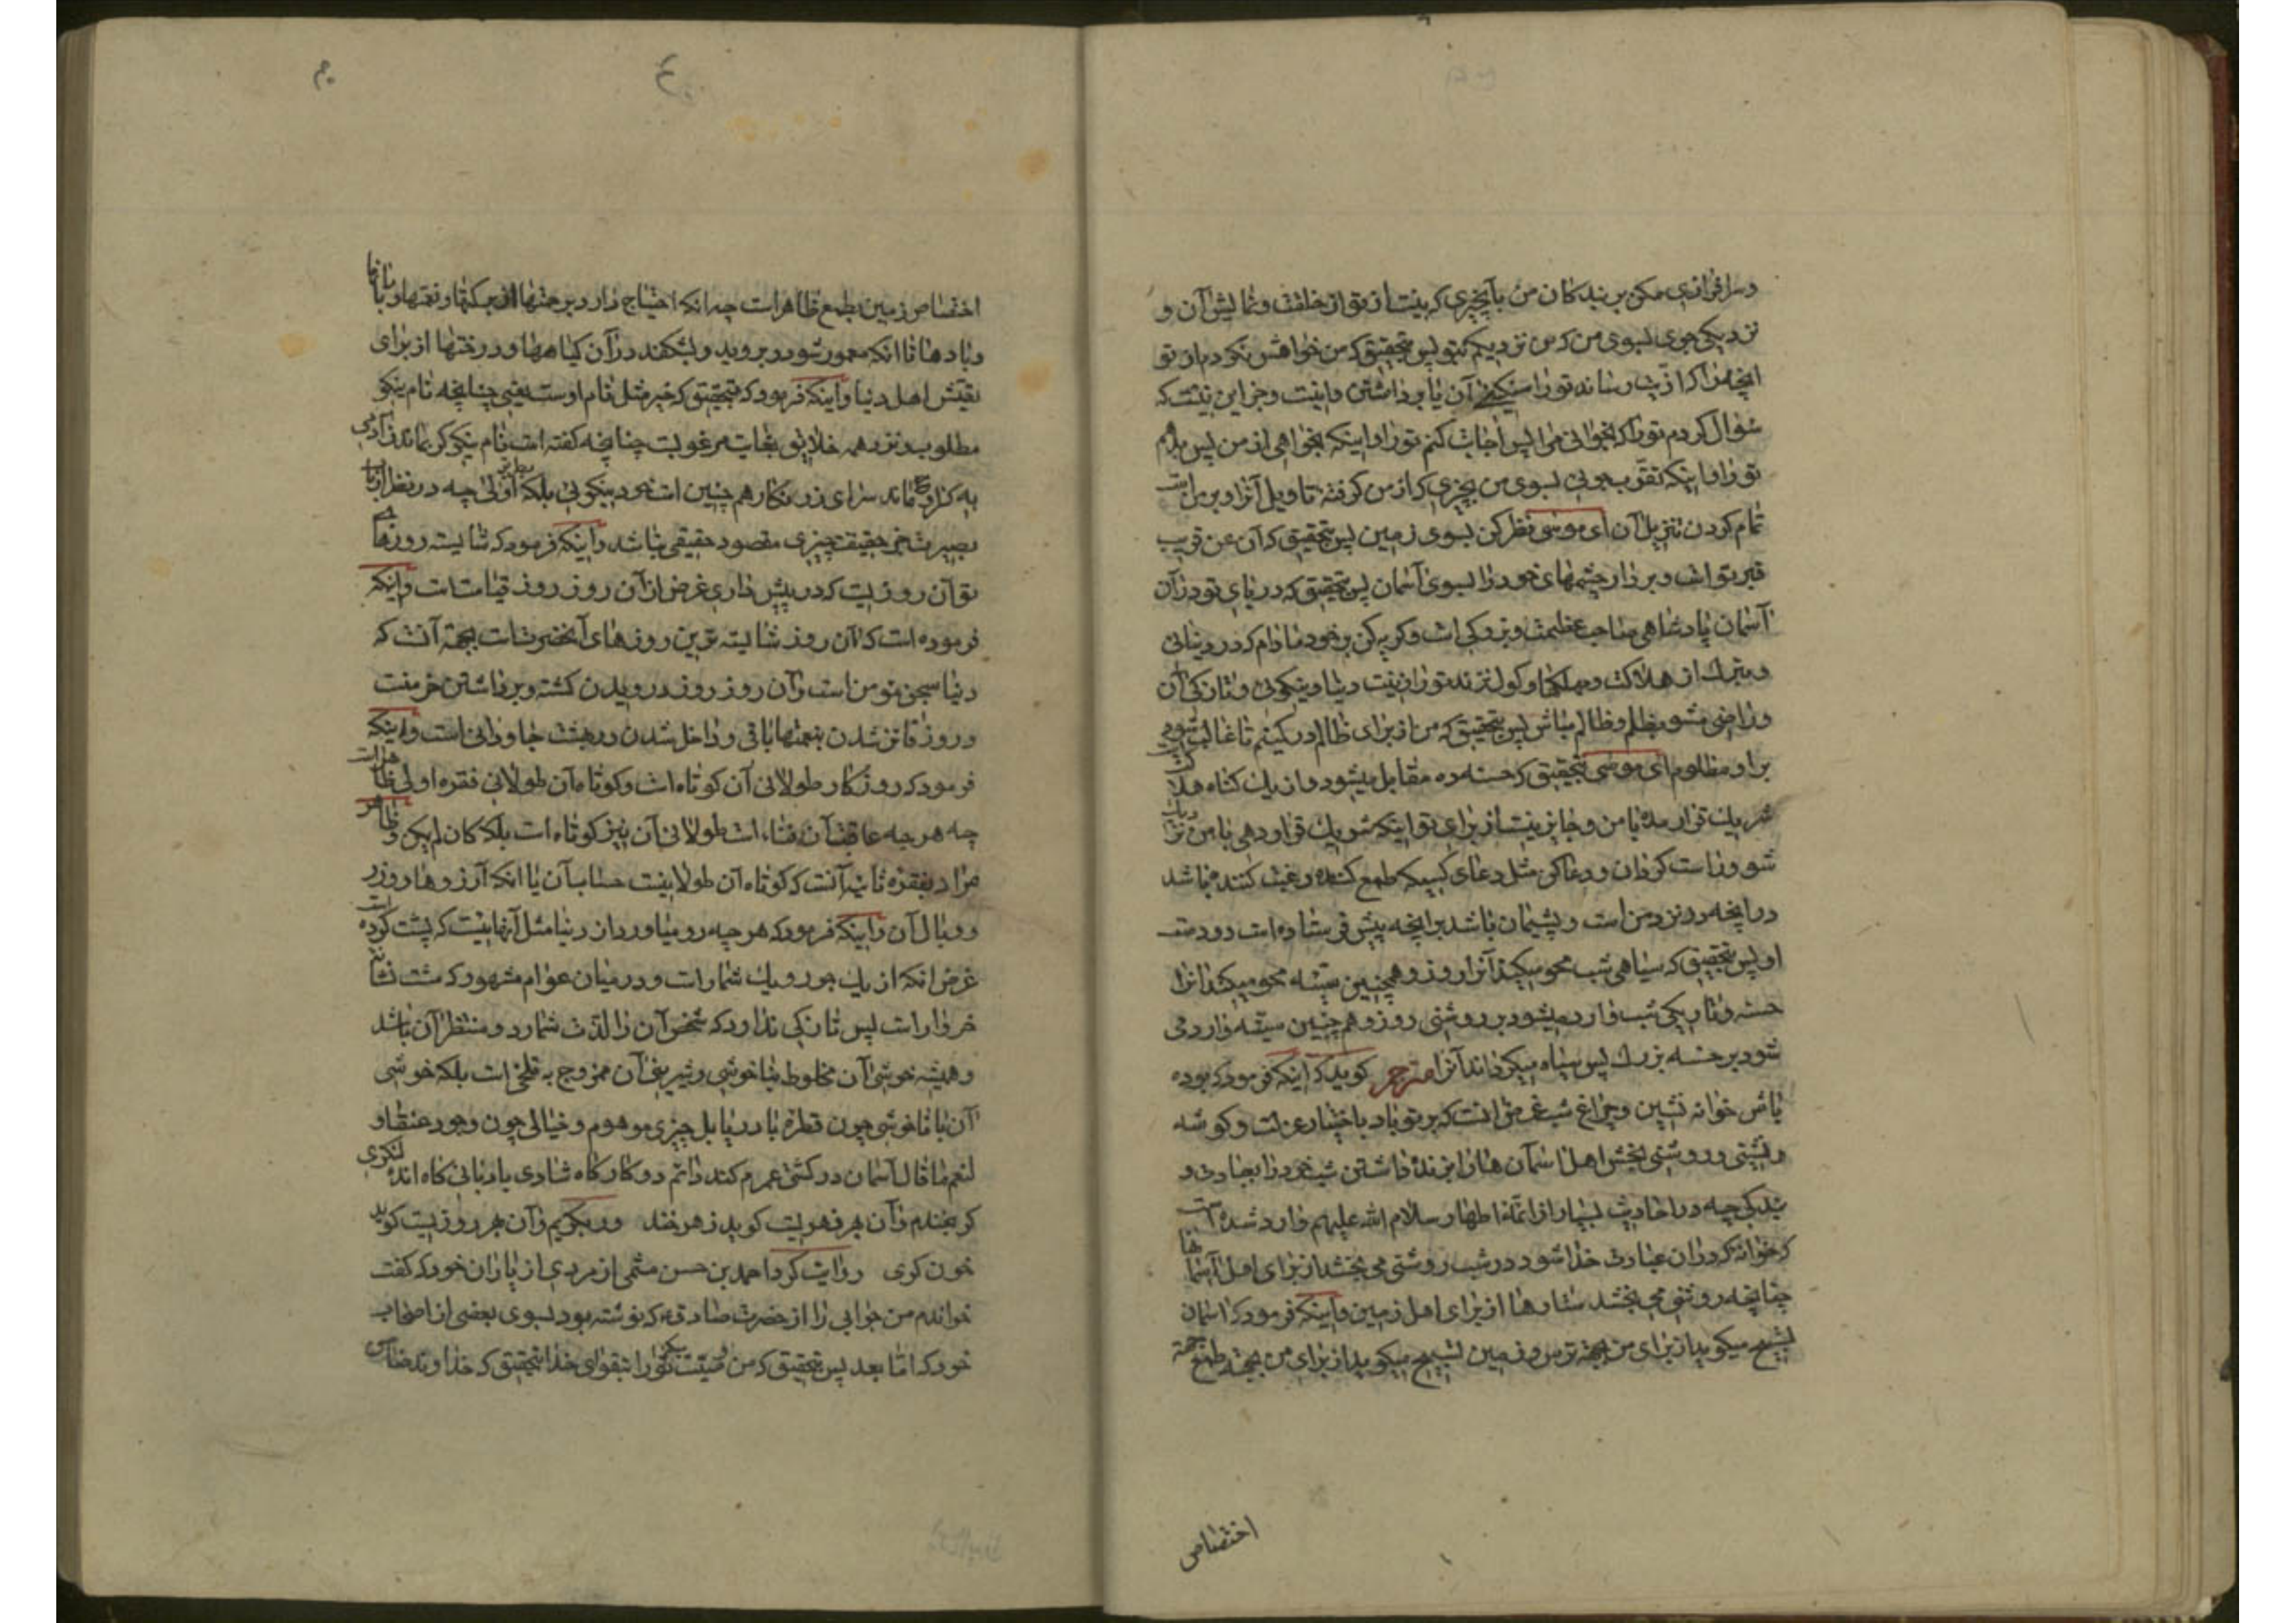 و سرافرازی مکن بر بندکان من بآنچیزی که نیست از تو از خلقت و نمایش آن و
نزدیکی جوی بسوی من که من نزدیکم بتو پس بتحقیق که من خواهش نکردم از تو
انچه مرا که اذیت رساند تو را سنکینی آن یا برداشتن و اینست و جز این نیست که
سؤال کردم تو را که بخوانی مرا پس اجابت کنم تو را و اینکه بخواهی از من پس بدهم
تو را و اینکه تقرب جوئی بسوی من بچیزی که از من کرفته تاویل آنرا و بر من است
تمام کردن تنزیل آن ای موسی نظر کن بسوی زمین پس بتحقیق که آن عن قریب
قبر تو است و بر دار چشمهای خود را بسوی آسمان پس بتحقیق که در بالای تو در آن
آسمان پادشاهی صاحب عظمت و بزرکی است و کریه کن بر خود مادام که در دنیائی
و بترس از هلاکت و مهلکها و کول نزند تو را زینت دنیا و نیکوئی و تازکی آن
و راضی مشو بظلم و ظالم مباش پس بتحقیق که من از برای ظالم در کمینم تا غالب شود
بر او مظلوم ای موسی بتحقیق که حسنه ده مقابل میشود و از یک کناه هلاکت
شریک قرار مده با من و جایز نیست از برای تو اینکه شریک قرار دهی با من نزدیک
شو و راست کردان و دعا کن مثل دعای کسیکه طمع کننده و رغبت کننده باشد
در انچه در نزد من است و پشیمان باشد بر انچه پیش فرستاده است دو دست
او پس بتحقیق که سیاهی شب محو میکند آنرا روز و همچنین سیئه محو میکند انرا
حسنه و تاریکی شب وارد میشود بر روشنی روز و هم چنین سیئه وارد می
شود بر حسنه بزرك پس سیاه میکرداند آنرا مترجم کوید که اینکه فرمود که بوده
باش خوانه نشین و چراغ شب غرض انست که بر تو باد باختیار عزلت و کوشه
نشینی و روشنی بخش اهل آسمان ها را بزنده داشتن شب خود را بعبادت و
بندکی چه در احادیث بسیار از ائمه اطهار سلام الله علیهم وارد شده است
که خوانه که در ان عبادت خدا شود در شب روشنی می بخشد از برای اهل آسمانها
چنانچه روشنی می بخشد ستارها از برای اهل زمین و اینکه فرمود که اسمان
تسبیح میکوید از برای من بجهة ترس و زمین تسبیح میکوید از برای من بجهة طمع رحمة
اختصاص
ع
اختصاص زمین بطمع ظاهر است چه انکه احتیاج دارد برحمتها از برکتها و نعمتها و بارانها
و بادها تا انکه معمور شود و بروید و بشکفد در آن کیاهها و درختها از برای
تعیش اهل دنیا و اینکه فرمود که بتحقیق که خیر مثل نام اوست یعنی چنانچه نام نیکو
مطلوب و نزد همه خلایق بغایت مرغوبست چنانچه کفته است نام نیکو کر بماند ز آدمی
به کزو ماند سرای زرنکار هم چنین است خود نیکوئی بلکه اولی چه در نظر ارباب
بصیرت خیر حقیقت چیزی مقصود حقیقی نباشد و اینکه فرمود که شایسته روزهای
تو آن روزیست که در پیش داری غرض از آن روز روز قیامت است و اینکه
فرموده است که آن روز شایسته ترین روزهای آنحضرتست بجهة آنست که
دنیا سجن مؤمن است و آن روز روز درویدن کشته و برداشتن خرمنست
و روز فائز شدن بنعمتها باقی و داخل شدن در بهشت جاودانی است و اینکه
فرمود که روزکار طولانی آن کوتاه است و کوتاه آن طولانی فقره اولی ظاهر است
چه هر چه عاقبت آن فناء است طولانی آن نیز کوتاه است بلکه کان لم یکن و ظاهر
مراد بفقره ثانیه آنست که کوتاه آن طولانیست حساب آن یا انکه آرزوها و وزر
و وبال آن و اینکه فرمود که هر چه رو میاورد از دنیا مثل آنهائیست که پشت کرده است
غرض انکه از یك جو رو یك شمار است و در میان عوام مشهور که مشت نشانه
خروار است پس تازکی ندارد که شخص آن را لذت شمارد و منتظر آن باشد
و همیشه خوشی آن مخلوط بناخوشی و شیرینی آن ممزوج به تلخی است بلکه خوشی
آن با ناخوشی چون قطره با دریا بل چیزی موهوم و خیالی چون وجود عنقا و
لنعم ما قال آسمان در کشتی عمرم کند دائم دو کار کاه شادی بادبانی کاه انده لنکری
کر بخندم و آن بهر فهریست کوید زهرخند ور بکریم و آن بهر روزیست کوید
خون کری روایت کرد احمد بن حسن میثمی از مردی از یاران خود که کفت
خواندم من جوابی را از حضرت صادق ع که نوشته بود بسوی بعضی از اصحاب
خود که اما بعد پس بتحقیق که من وصیت میکنم تو را بتقوای خدا بتحقیق که خداوند ضامن